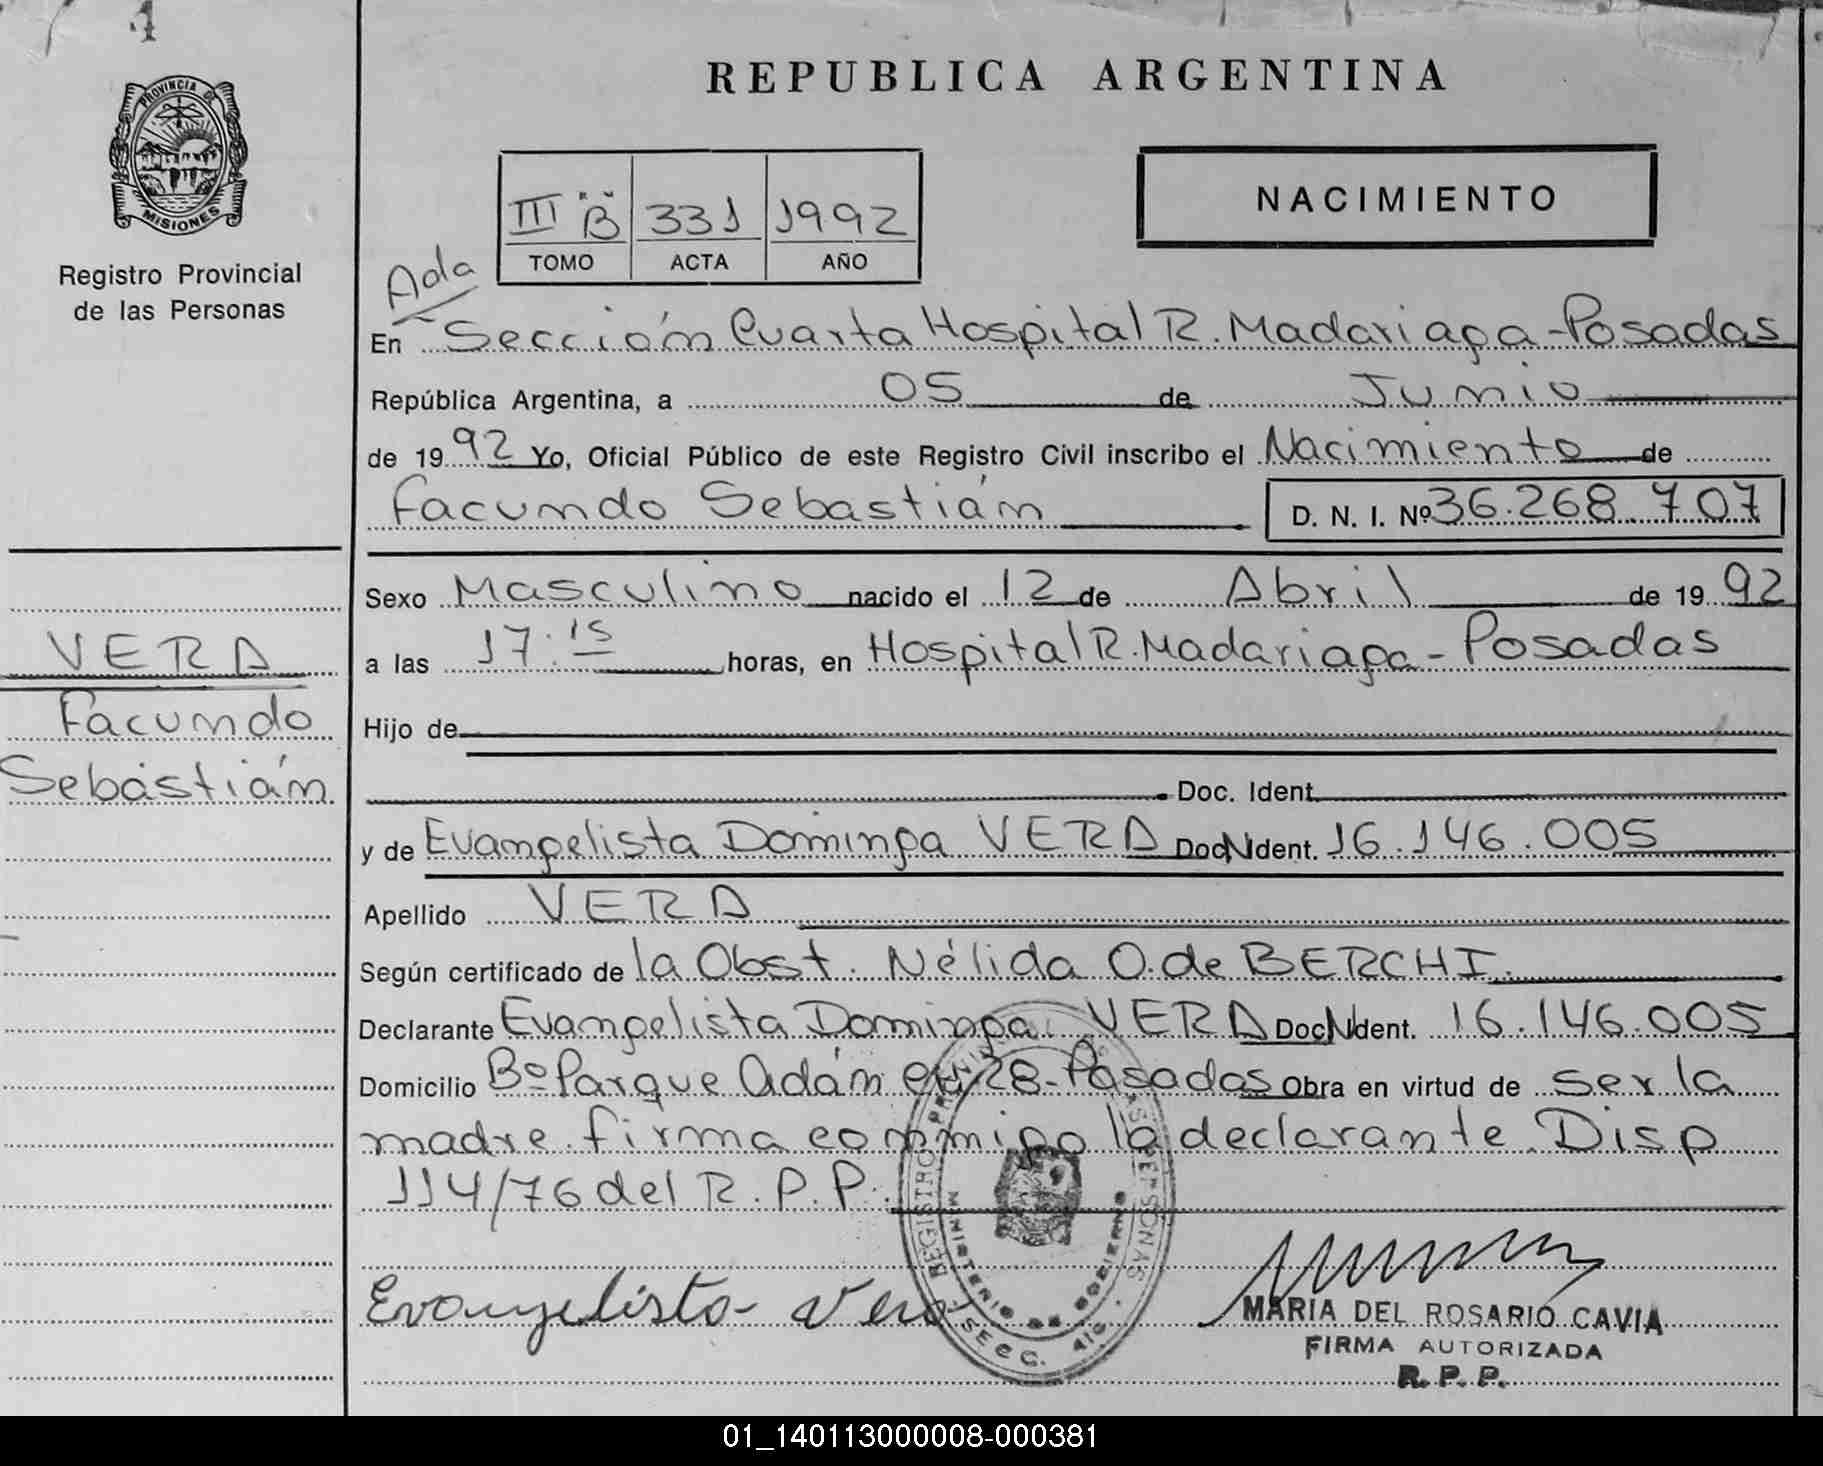 4
PROVINCIA DE
MISIONES
Registro Provincial
de las Personas
REPUBLICA ARGENTINA
III "B" 331 1992
TOMO ACTA AÑO
NACIMIENTO
Ada
En Sección Cuarta Hospital R. Madariaga - Posadas
República Argentina, a 05 de Junio
de 1992 Yo, Oficial Público de este Registro Civil inscribo el Nacimiento de
Facundo Sebastián D. N. I. Nº 36.268.707
Sexo Masculino nacido el 12 de Abril de 1992
a las 17.15 horas, en Hospital R. Madariaga - Posadas
Hijo de
Doc. Ident.
y de Evangelista Dominga VERA Doc N Ident. 16.146.005
Apellido VERA
Según certificado de la Obst. Nélida O. de BERCHI.
Declarante Evangelista Dominga VERA Doc N Ident. 16.146.005
Domicilio Bº Parque Adán 28 - Posadas Obra en virtud de ser la
madre. firma conmigo la declarante. Disp
114/76 del R. P. P.
Evangelista Vera
MARIA DEL ROSARIO CAVIA
FIRMA AUTORIZADA
R. P. P.
VERA
Facundo
Sebastián
REGISTRO PERSONAS
MINISTERIO DE GOBIERNO
01_140113000008-000381